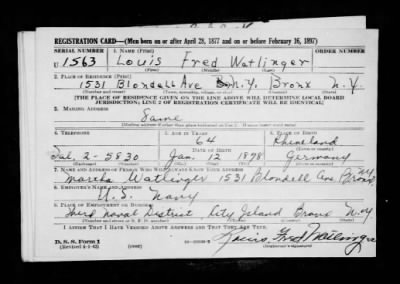 REGISTRATION CARD—(Men born on or after April 28, 1877 and on or before February 16, 1897)
SERIAL NUMBER 1. NAME (Print) ORDER NUMBER
U 1563 Louis Fred Watlinger
(First) (Middle) (Last)
2. PLACE OF RESIDENCE (Print)
1531 Blondell Ave N.Y. Bronx N.Y.
(Number and street) (Town, township, village, or city) (County) (State)
[THE PLACE OF RESIDENCE GIVEN ON THE LINE ABOVE WILL DETERMINE LOCAL BOARD
JURISDICTION; LINE 2 OF REGISTRATION CERTIFICATE WILL BE IDENTICAL]
3. MAILING ADDRESS
Same
4. TELEPHONE 5. AGE IN YEARS 6. PLACE OF BIRTH
64 Rhineland
DATE OF BIRTH
Tal. 2-5830 Jan. 12 1878 Germany
7. NAME AND ADDRESS OF PERSON WHO WILL ALWAYS KNOW YOUR ADDRESS
Martha Watlinger 1531 Blondell Ave Bronx N.Y.
8. EMPLOYER'S NAME AND ADDRESS
U.S. Navy
9. PLACE OF EMPLOYMENT OR BUSINESS
Third Naval District City Island Bronx N.Y.
(Number and street or R. F. D. number) (Town) (County) (State)
I AFFIRM THAT I HAVE VERIFIED ABOVE ANSWERS AND THAT THEY ARE TRUE.
D. S. S. Form 1
(Revised 4-1-42) (over)
Louis Fred Watlinger
(Registrant's signature)